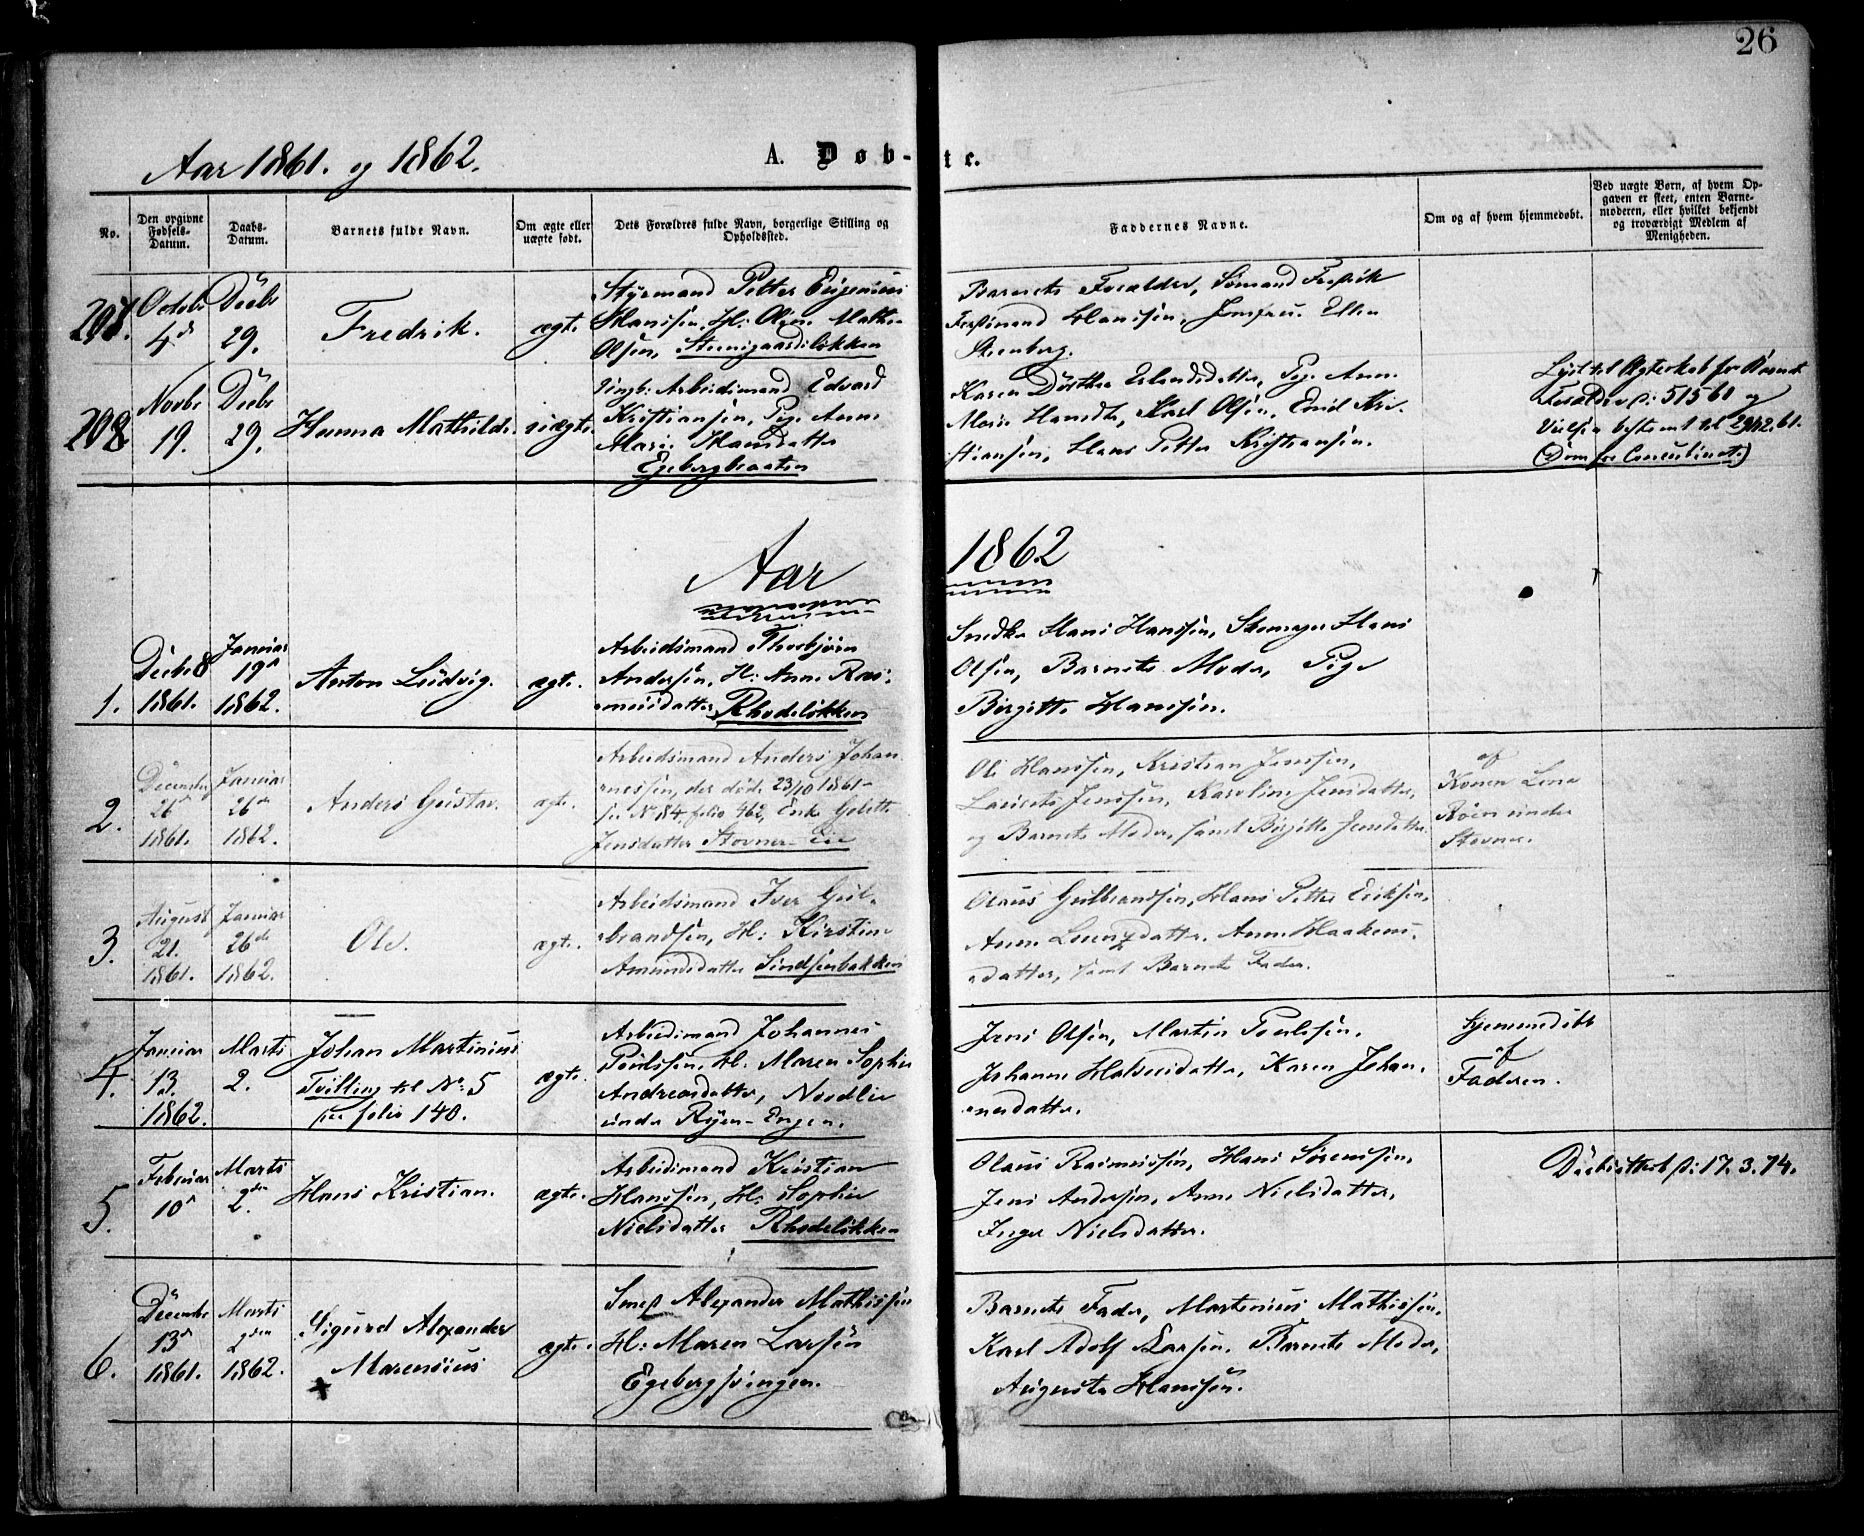 26
Aar 1861. og 1862.
A. Døb-te.
No.
Den opgivne Fødsels-Datum.
Daabs-Datum.
Barnets fulde Navn.
Om ægte eller uægte født.
Dets Forældres fulde Navn, borgerlige Stilling og Opholdssted.
Faddernes Navne.
Om og af hvem hjemmedøbt.
Ved uægte Børn, af hvem Op-
gaven er skeet, enten Barne-
moderen, eller hvilket bekjendt
og troværdigt Medlem af
Menigheden.
207.
Octobr
4de
Decbr
29.
Fredrik.
ægte
Styrmand Petter Eugenius
Hanssen, H: Oline Mathea
Olsen,
Barnets Forældre, Sømand Fredrik
Ferdinand Hanssen, Jomfru Ellen
Steenberg.
208
Novbr
19.
Decbr
29.
Hanna Mathilde.
uægte
Ungk: Arbeidsmand Edvard
Kristiansen, Pige Anne
Marie Hansdatter
Egebergbraaten
Karen Dorthea Erlandsdatter, Pige Anne
Marie Hansdtr, Karl Olsen, Emil Kri-
stiansen, Hans Petter Kristiansen.
Lyst til Ægteskab for Barnets
Forældre
Vielsen bestemt til 29/12.61.
Aar 1862
1.
Decbr 8
1861.
Januar
19de
1862.
Anton Ludvig.
ægte.
Arbeidsmand Thorbjørn
Andersen, H: Anne Ras-
musdatter, Rhodeløkken
Snedker Hans Hanssen, Skomager Hans
Olsen, Barnets Moder, Pige
Birgitte Hanssen.
2.
December
26de
1861.
Januar
26de
1862.
Anders Gustav.
ægte.
Arbeidsmand Anders Johan
nessen, der døde 23/10 1861
see No 84, folio 462, Enke
Jensdatter Stovner-Eie
Ole Hanssen, Kristian Jenssen,
Laurits Jenssen, Karoline Jensdatter,
og Barnets Moder, samt Birgitte Jensdatter.
af
Konen Lene
under
Stovner.
3.
August
21.
1861.
Januar
26de
1862.
Ole.
ægte.
Arbeidsmand Iver Gul-
brandsen, H: Kirstine
Amundsdatter Sindsenbakken
Olaus Gulbrandsen, Hans Petter Eriksen,
Anne Lorenzdatter, Anne Haakens-
datter, samt Barnets Fader.
4.
Januar
13.
1862.
Marts
2.
Johan Martinius
Tvilling til No: 5
see folio 140.
ægte.
Arbeidsmand Johannes
Poulssen, H: Maren Sophie
Andreasdatter,
under Ryen-Engen.
Jens Olsen, Martin Poulssen,
Johanne Halvorsdatter, Karen Johan-
nesdatter.
Hjemmedøbt
af
Faderen.
5.
Februar
10de
Marts
2den
Hans Kristian.
ægte.
Arbeidsmand Kristian
Hanssen, H: Sophie
Nielsdatter Rhodeløkken
Olaus Rasmussen, Hans Sørenssen,
Jens Andersen, Anne Nielsdatter,
Inger Nielsdatter.
Døbeattest p: 17.3.74.
6.
December
13de
1861.
Marts
2den
1862.
Sigurd Alexander
Marensius
ægte.
Smed Alexander Mathissen
H: Maren Larsen
Egebergsvingen.
Barnets Fader, Martinius Mathissen,
Karl Adolf Larsen, Barnets Moder,
Augusta Hanssen.